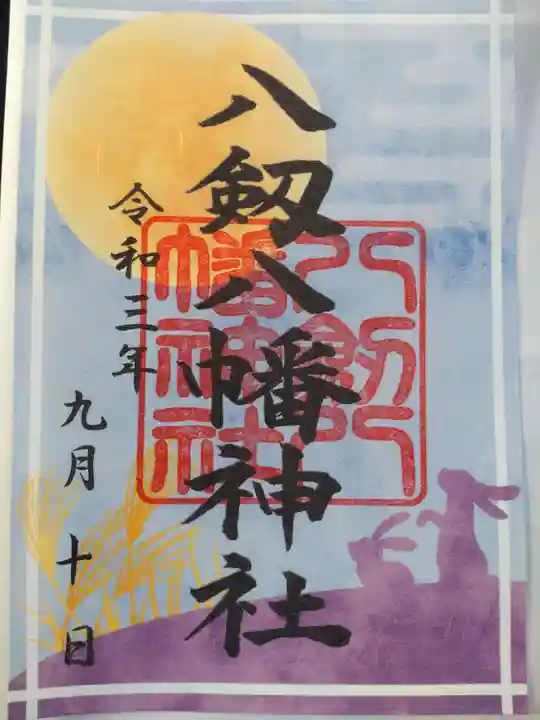 八剱八幡神社
令和三年
九月十日
八剱八幡神社